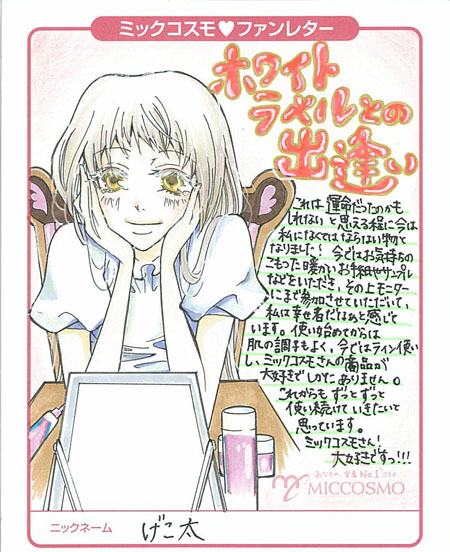 ミックコスモ♥ファンレター
ホワイト
ラベルとの
出逢い
これは運命だったのかも
しれないと思える程に今は
私になくてはならない物と
なりました〜 今ではお気持ちの
こもった暖かいお手紙やサンプル
などをいただき、その上モニター
にまで参加させていただいて、
私は幸せ者だなぁと感じて
います。使い始めてからは
肌の調子もよく、今ではライン使い
し、ミックコスモさんの商品が
大好きでしかたありません。
これからも ずっと ずっと
使い続けていきたいと
思っています。
ミックコスモさん!
大好きですっ!!!
あなたの、定番 No.1コスメ
MICCOSMO
ニックネーム げこ太